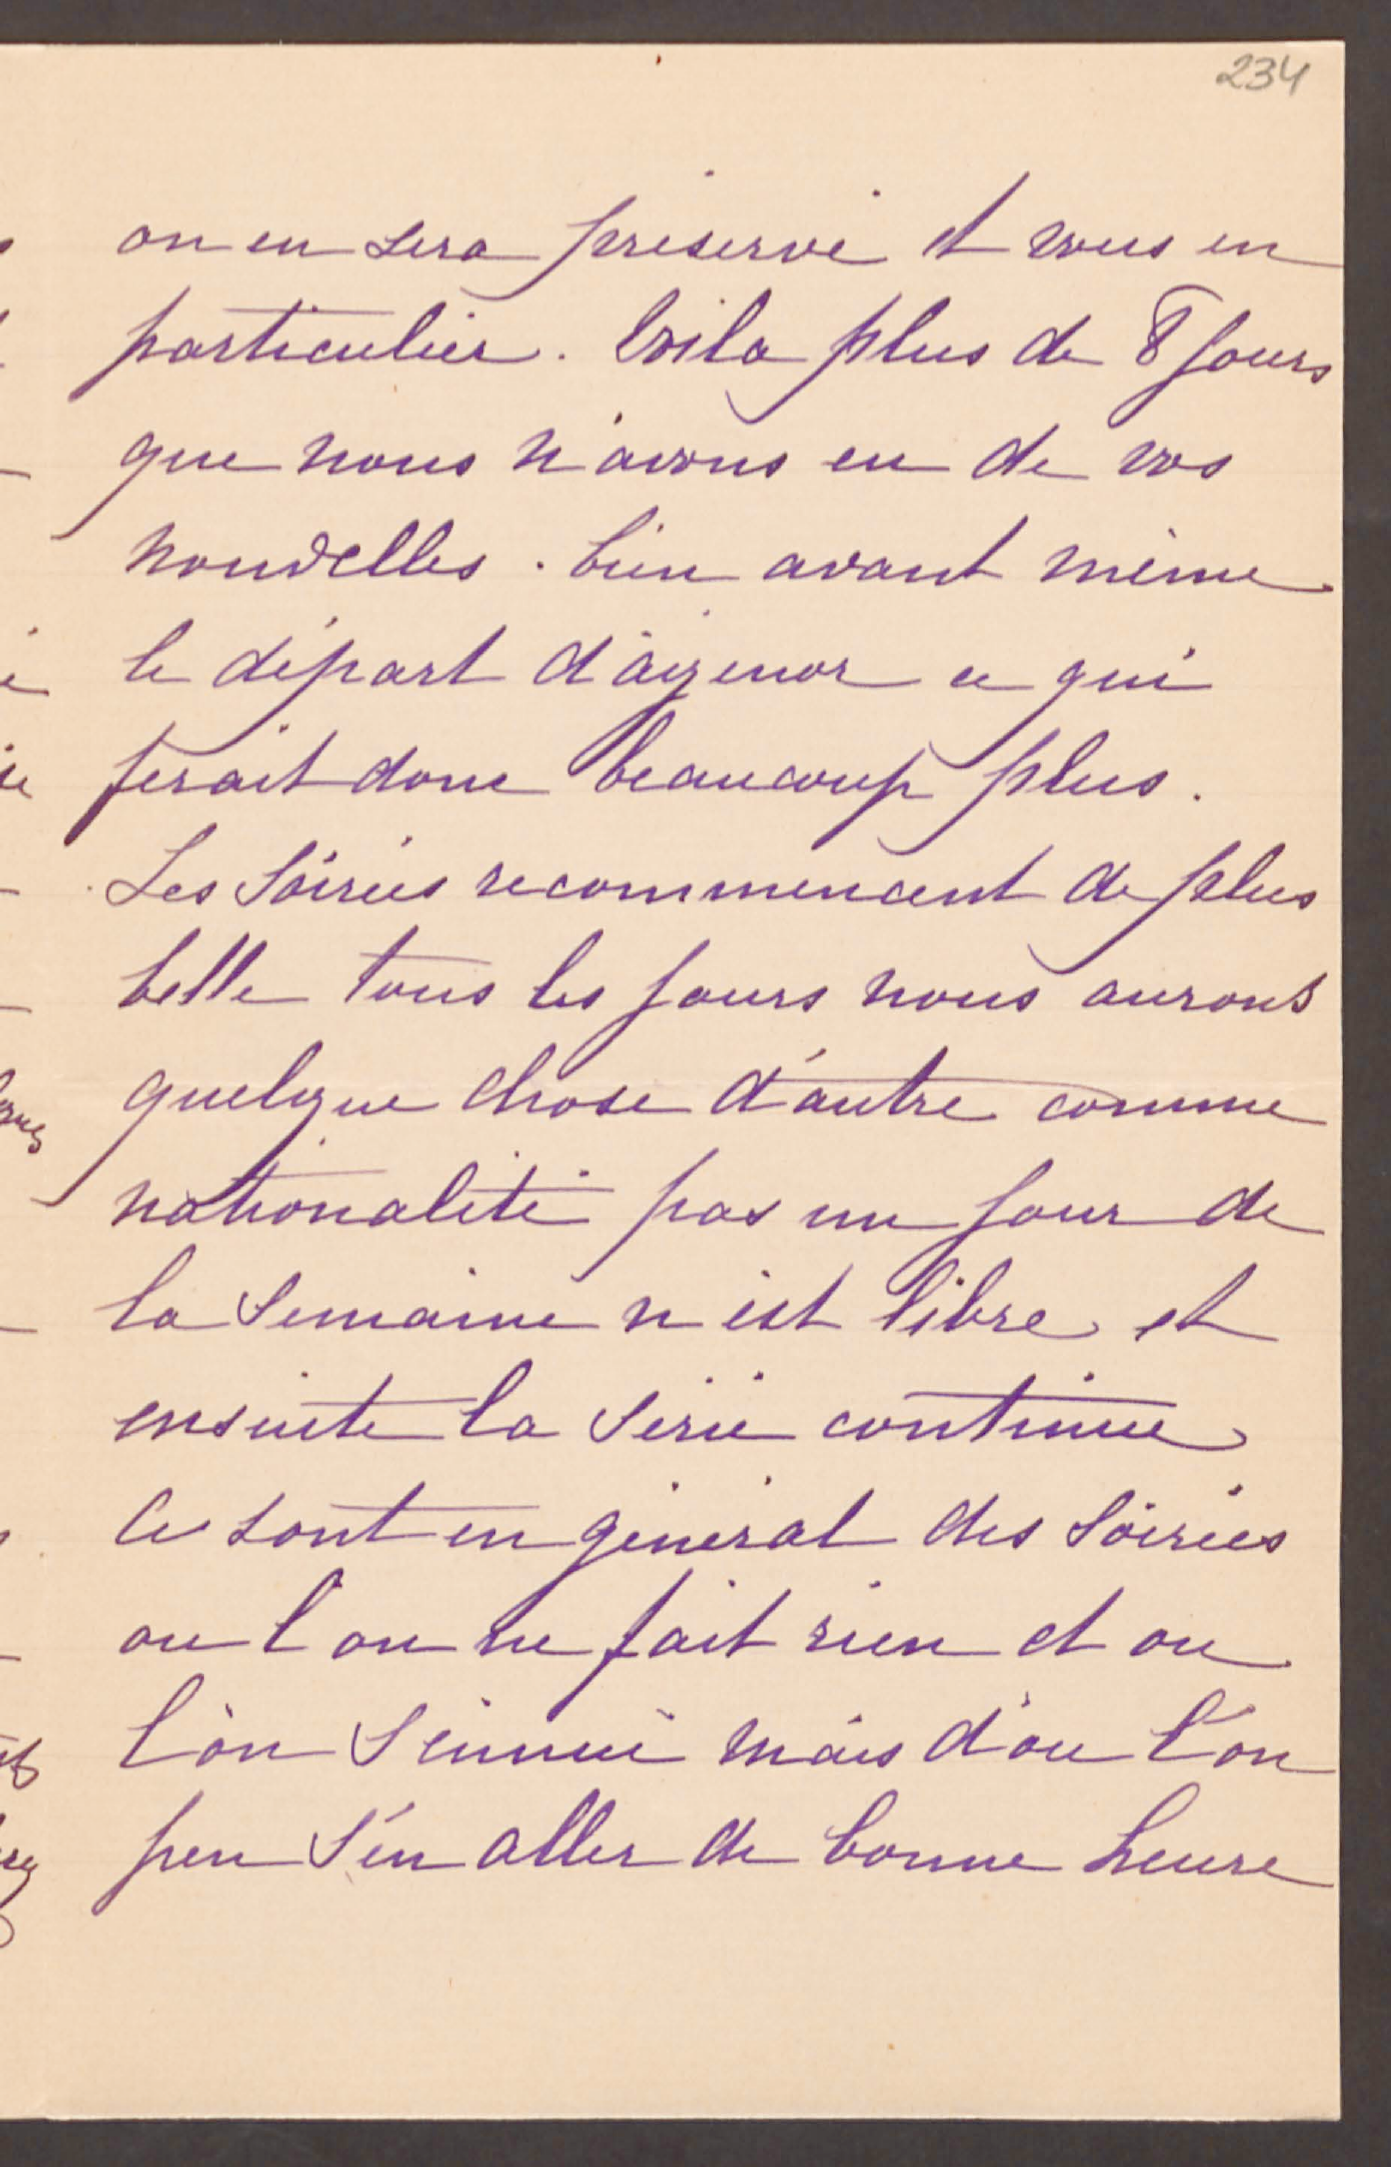 234
on en sera préservé et vous en
particulier. Voila plus de 8 jours
que nous n'avons eu de vos
nouvelles. bien avant même
le départ d'Agenor ce qui
ferait donc beaucoup plus.
Les Soirées recommencent de plus
belle tous les jours nous aurons
quelque chose d'autre comme
nationalité pas un jour de
la Semaine n'est libre et
ensuite la Série continue
Ce sont en général des Soirées
ou l'on ne fait rien et ou
l'on S'ennuie mais d'ou l'on
peu S'en aller de bonne heure